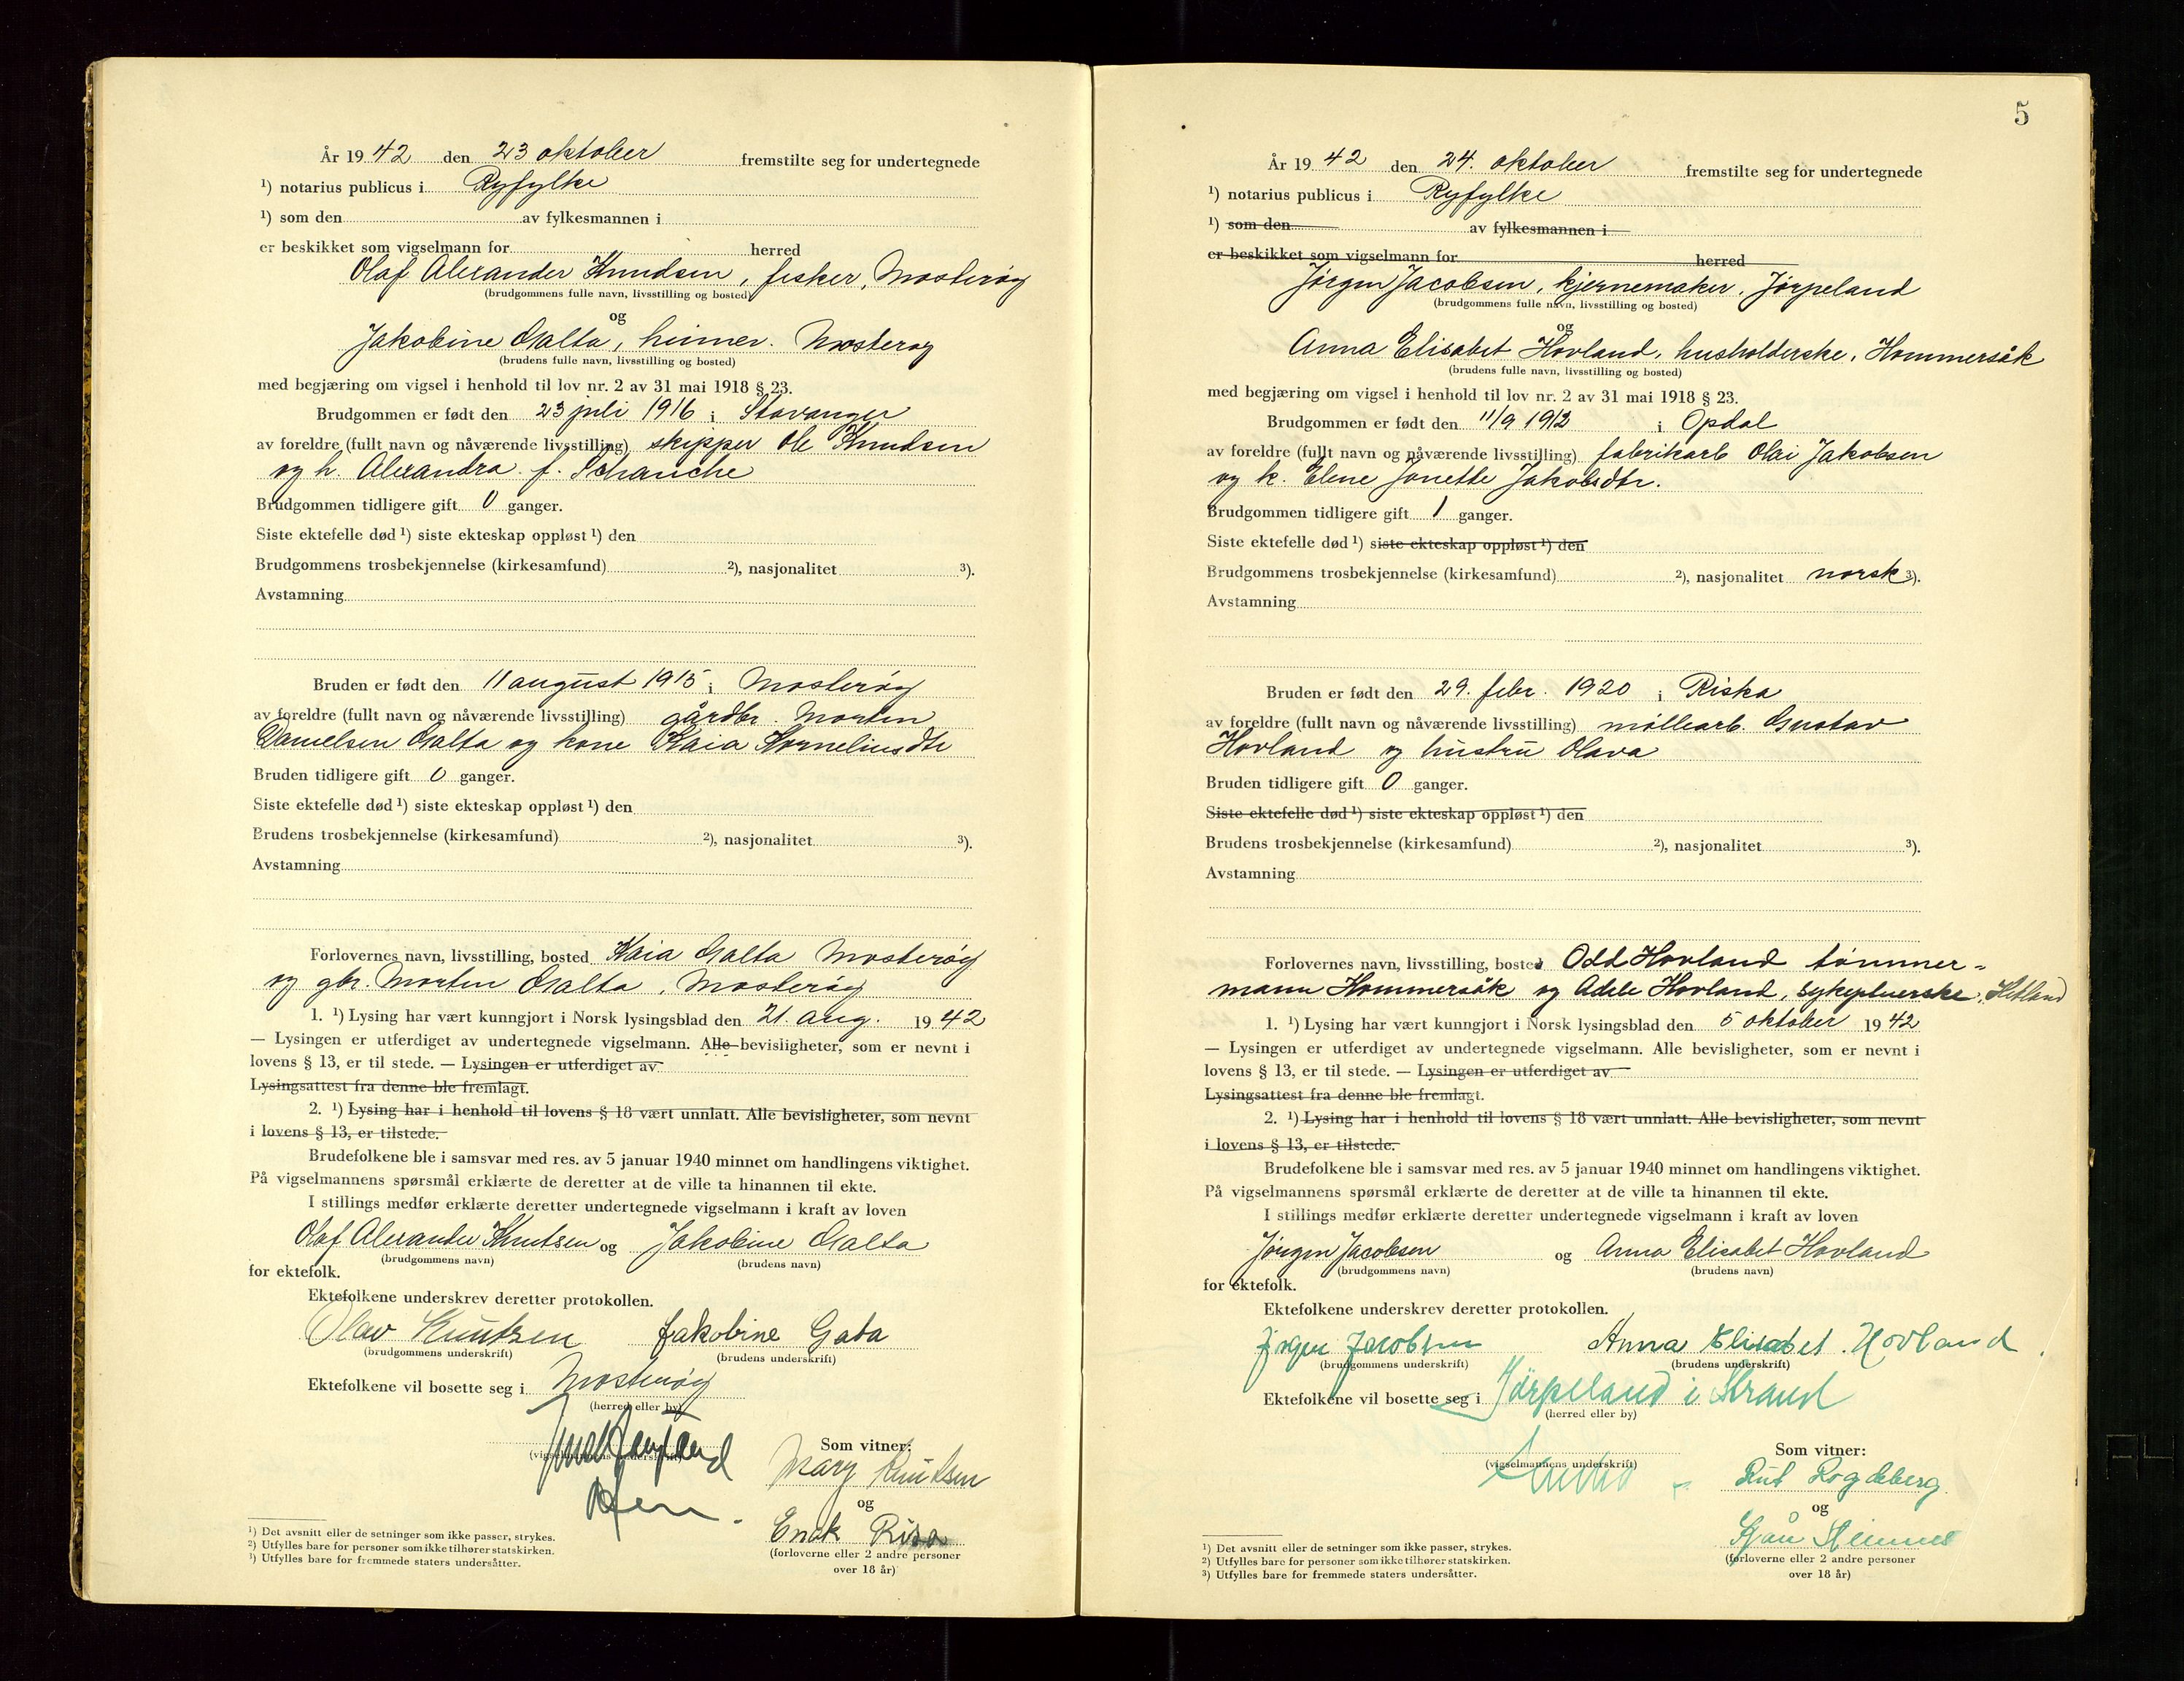 År 19 42 den 23 oktober fremstilte seg for undertegnede
¹) notarius publicus i Ryfylke
¹) som den av fylkesmannen i
er beskikket som vigselmann for herred
Olaf Alexander Knudsen, fisker, Mosterøy
(brudgommens fulle navn, livsstilling og bosted)
og
Jakobine Galta, heimev. Mosterøy
(brudens fulle navn, livsstilling og bosted)
med begjæring om vigsel i henhold til lov nr. 2 av 31 mai 1918 § 23.
Brudgommen er født den 23 juli 1916 i Stavanger
av foreldre (fullt navn og nåværende livsstilling) skipper Ole Knudsen
og h. Alexandra f. Schanche
Brudgommen tidligere gift 0 ganger.
Siste ektefelle død ¹) siste ekteskap oppløst ¹) den
Brudgommens trosbekjennelse (kirkesamfund) ²), nasjonalitet ³).
Avstamning
Bruden er født den 11 august 1915 i Mosterøy
av foreldre (fullt navn og nåværende livsstilling) gårdbr. Morten
Danielsen Galta og kone Kaia Korneliusdtr
Bruden tidligere gift 0 ganger.
Siste ektefelle død ¹) siste ekteskap oppløst ¹) den
Brudens trosbekjennelse (kirkesamfund) ²), nasjonalitet ³).
Avstamning
Forlovernes navn, livsstilling, bosted Kaia Galta Mosterøy
og gbr. Morten Galta, Mosterøy
1. ¹) Lysing har vært kunngjort i Norsk lysingsblad den 21. aug. 19 42
— Lysingen er utferdiget av undertegnede vigselmann. Alle bevisligheter, som er nevnt i
lovens § 13, er til stede. — Lysingen er utferdiget av
Lysingsattest fra denne ble fremlagt.
2. ¹) Lysing har i henhold til lovens § 18 vært unnlatt. Alle bevisligheter, som nevnt
i lovens § 13, er tilstede.
Brudefolkene ble i samsvar med res. av 5 januar 1940 minnet om handlingens viktighet.
På vigselmannens spørsmål erklærte de deretter at de ville ta hinannen til ekte.
I stillings medfør erklærte deretter undertegnede vigselmann i kraft av loven
Olaf Alexander Knutsen og Jakobine Galta
(brudgommens navn) (brudens navn)
for ektefolk.
Ektefolkene underskrev deretter protokollen.
Olav Knutsen Jakobine Gata
(brudgommens underskrift) (brudens underskrift)
Ektefolkene vil bosette seg i Mosterøy
(herred eller by)
(vigselmannens underskrift)
Som vitner:
Mary Knutsen
og
Enok Risa
(forloverne eller 2 andre personer
over 18 år)
¹) Det avsnitt eller de setninger som ikke passer, strykes.
²) Utfylles bare for personer som ikke tilhører statskirken.
³) Utfylles bare for fremmede staters undersåtter.
5
År 19 42 den 24. oktober fremstilte seg for undertegnede
¹) notarius publicus i Ryfylke
¹) som den av fylkesmannen i
er beskikket som vigselmann for herred
Jørgen Jacobsen, kjernemaker, Jørpeland
(brudgommens fulle navn, livsstilling og bosted)
og
Anna Elisabet Hovland, husholderske, Hommersåk
(brudens fulle navn, livsstilling og bosted)
med begjæring om vigsel i henhold til lov nr. 2 av 31 mai 1918 § 23.
Brudgommen er født den 11/9 1912 i Opdal
av foreldre (fullt navn og nåværende livsstilling) fabrikarb Olai Jakobsen
og k. Elene Jonette Jakobsdtr.
Brudgommen tidligere gift 1 ganger.
Siste ektefelle død ¹) siste ekteskap oppløst ¹) den
Brudgommens trosbekjennelse (kirkesamfund) ²), nasjonalitet norsk ³).
Avstamning
Bruden er født den 29. febr. 1920 i Riska
av foreldre (fullt navn og nåværende livsstilling) møllearb. Gustav
Hovland og hustru Olava
Bruden tidligere gift 0 ganger.
Siste ektefelle død ¹) siste ekteskap oppløst ¹) den
Brudens trosbekjennelse (kirkesamfund) ²), nasjonalitet ³).
Avstamning
Forlovernes navn, livsstilling, bosted Odd Hovland tømmer-
mann Hommersåk og Adele Hovland, sykepleierske, Hetland
1. ¹) Lysing har vært kunngjort i Norsk lysingsblad den 5 oktober 19 42
— Lysingen er utferdiget av undertegnede vigselmann. Alle bevisligheter, som er nevnt i
lovens § 13, er til stede. — Lysingen er utferdiget av
Lysingsattest fra denne ble fremlagt.
2. ¹) Lysing har i henhold til lovens § 18 vært unnlatt. Alle bevisligheter, som nevnt
i lovens § 13, er tilstede.
Brudefolkene ble i samsvar med res. av 5 januar 1940 minnet om handlingens viktighet.
På vigselmannens spørsmål erklærte de deretter at de ville ta hinannen til ekte.
I stillings medfør erklærte deretter undertegnede vigselmann i kraft av loven
Jørgen Jacobsen og Anna Elisabet Hovland
(brudgommens navn) (brudens navn)
for ektefolk.
Ektefolkene underskrev deretter protokollen.
Jørgen Jacobsen Anna Elisabet Hovland
(brudgommens underskrift) (brudens underskrift)
Ektefolkene vil bosette seg i Jørpeland i Strand
(herred eller by)
(vigselmannens underskrift)
Som vitner:
Rut Rogdeberg
og
(forloverne eller 2 andre personer
over 18 år)
¹) Det avsnitt eller de setninger som ikke passer, strykes.
²) Utfylles bare for personer som ikke tilhører statskirken.
³) Utfylles bare for fremmede staters undersåtter.